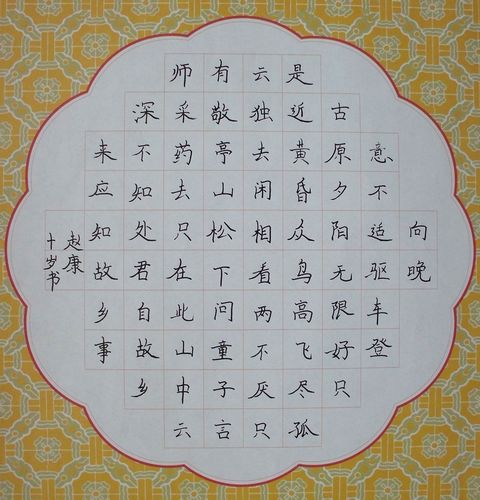 向晚
意不适驱车登
古原夕阳无限好只
是近黄昏众鸟高飞尽孤
云独去闲相看两不厌只
有敬亭山松下问童子言
师采药去只在此山中云
深不知处君自故乡
来应知故乡事
赵康
十岁书